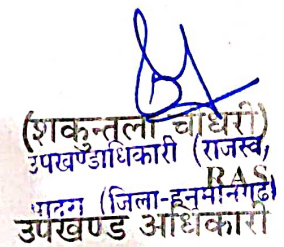 (शकुन्तला चौधरी)
उपखण्डाधिकारी (राजस्व,
RAS
(जिला-हनुमानगढ)
उपखण्ड अधिकारी